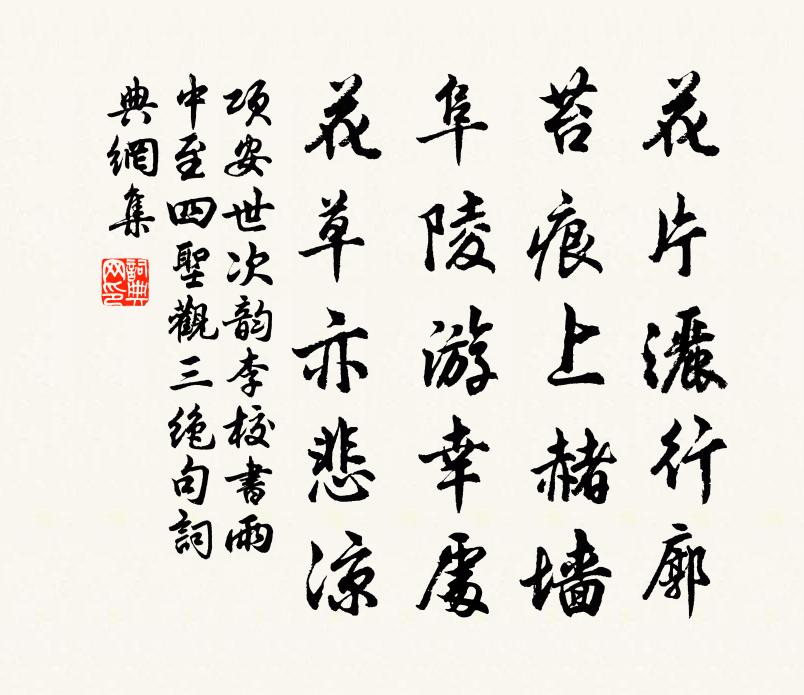 花片灑行廓
苔痕上赭墙
阜陵游幸處
花草亦悲涼
項安世次韵李校書雨
中至四聖觀三絶句詞
典網集
詞典
网印